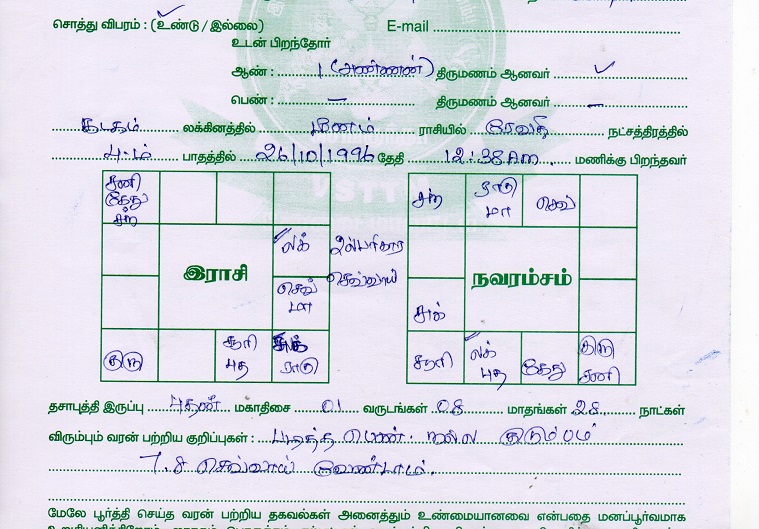 சொத்து விபரம் : (உண்டு / இல்லை) E-mail
உடன் பிறந்தோர்
ஆண் : 1 (அண்ணன்) திருமணம் ஆனவர் ✓
பெண் : – திருமணம் ஆனவர் –
கடகம் லக்கினத்தில் மீனம் ராசியில் ரேவதி நட்சத்திரத்தில்
4-ம் பாதத்தில் 26/10/1996 தேதி 12:38 Am மணிக்கு பிறந்தவர்
சனி
கேது
சந்
லக்
செவ்
மா
இராசி
குரு
சூரி
புத
சுக்
ராகு
செவ்வாய்
சந்
ராகு
மா
செவ்
நவாம்சம்
சுக்
சூரி
லக்
புத
கேது
குரு
சனி
தசாபுத்தி இருப்பு புதன் மகாதிசை 01 வருடங்கள் 08 மாதங்கள் 28 நாட்கள்
விரும்பும் வரன் பற்றிய குறிப்புகள் : படித்த பெண். நல்ல குடும்பம்
7. 8 செவ்வாய் வேண்டாம்.
மேலே பூர்த்தி செய்த வரன் பற்றிய தகவல்கள் அனைத்தும் உண்மையானவை என்பதை மனப்பூர்வமாக